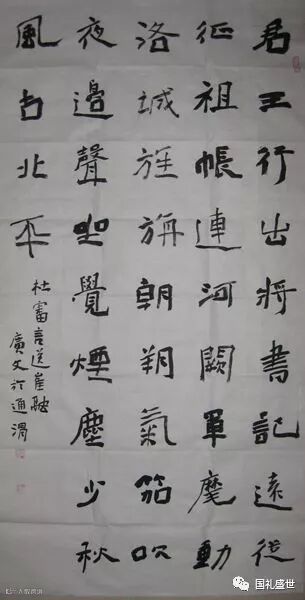 君王行出將書記遠從
征祖帳連河闕軍麾動
洛城旌旃朝朔氣笳吹
夜邊聲坐覺煙塵少秋
風古北平
杜審言送崔融
廣文於通渭
国礼盛世